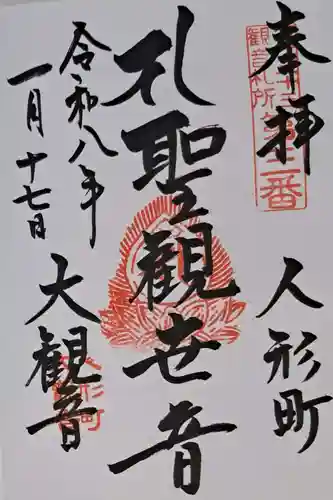 奉拝
観音札所第三番
人形町
聖観世音
大観音
令和八年
一月十七日
人形町